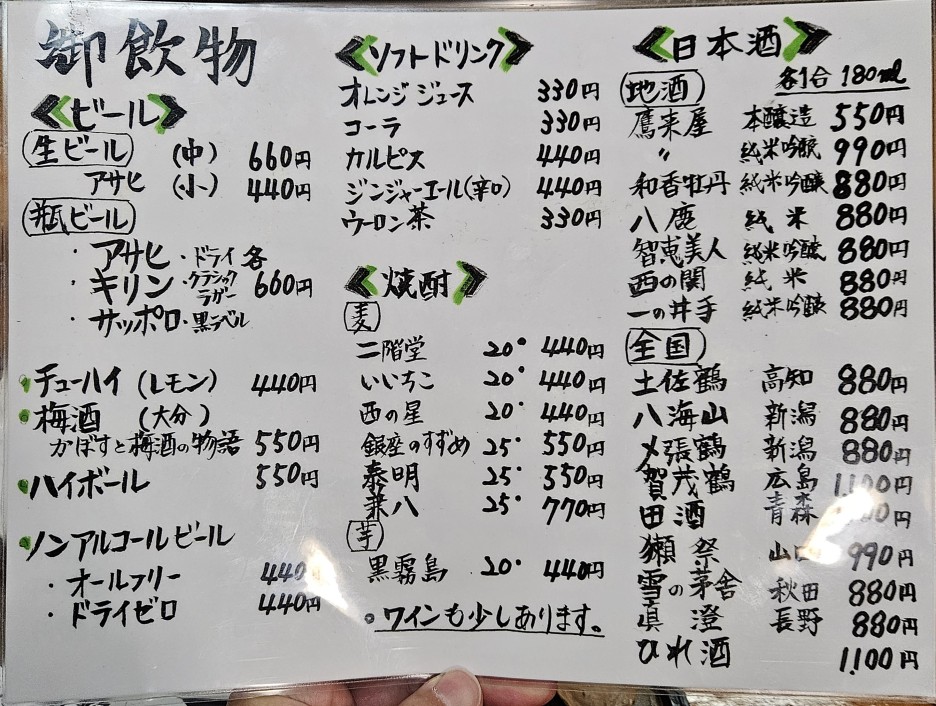 御飲物
ビール
生ビール (中) 660円
アサヒ (小) 440円
瓶ビール
・アサヒ・ドライ 各
・キリン・クラシック ラガー 660円
・サッポロ・黒ラベル
チューハイ (レモン) 440円
梅酒 (大分)
かぼすと梅酒の物語 550円
ハイボール 550円
ノンアルコールビール
・オールフリー 440円
・ドライゼロ 440円
ソフトドリンク
オレンジジュース 330円
コーラ 330円
カルピス 440円
ジンジャーエール(辛口) 440円
ウーロン茶 330円
焼酎
麦
二階堂 20° 440円
いいちこ 20° 440円
西の星 20° 440円
銀座のすずめ 25° 550円
泰明 25° 550円
兼八 25° 770円
芋
黒霧島 20° 440円
○ワインも少しあります。
日本酒
各1合 180ml
地酒
鷹来屋 本醸造 550円
〃 純米吟醸 990円
和香牡丹 純米吟醸 880円
八鹿 純米 880円
智恵美人 純米吟醸 880円
西の関 純米 880円
一の井手 純米吟醸 880円
全国
土佐鶴 高知 880円
八海山 新潟 880円
〆張鶴 新潟 880円
賀茂鶴 広島 1,100円
田酒 青森 円
獺祭 山口 990円
雪の茅舎 秋田 880円
真澄 長野 880円
ひれ酒 1,100円